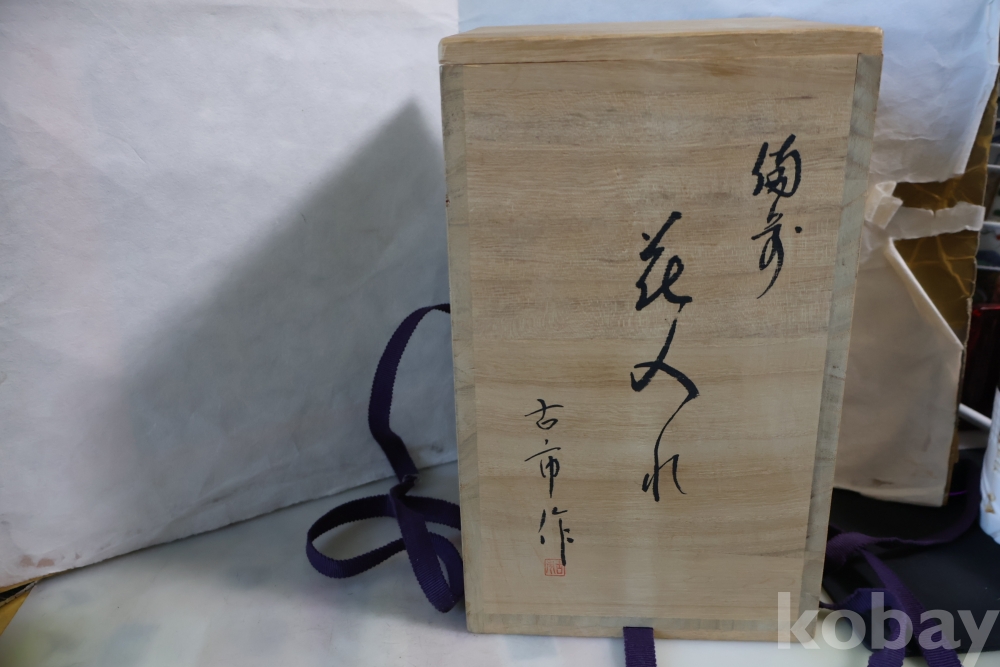 備前
花入れ
古市作
kobay